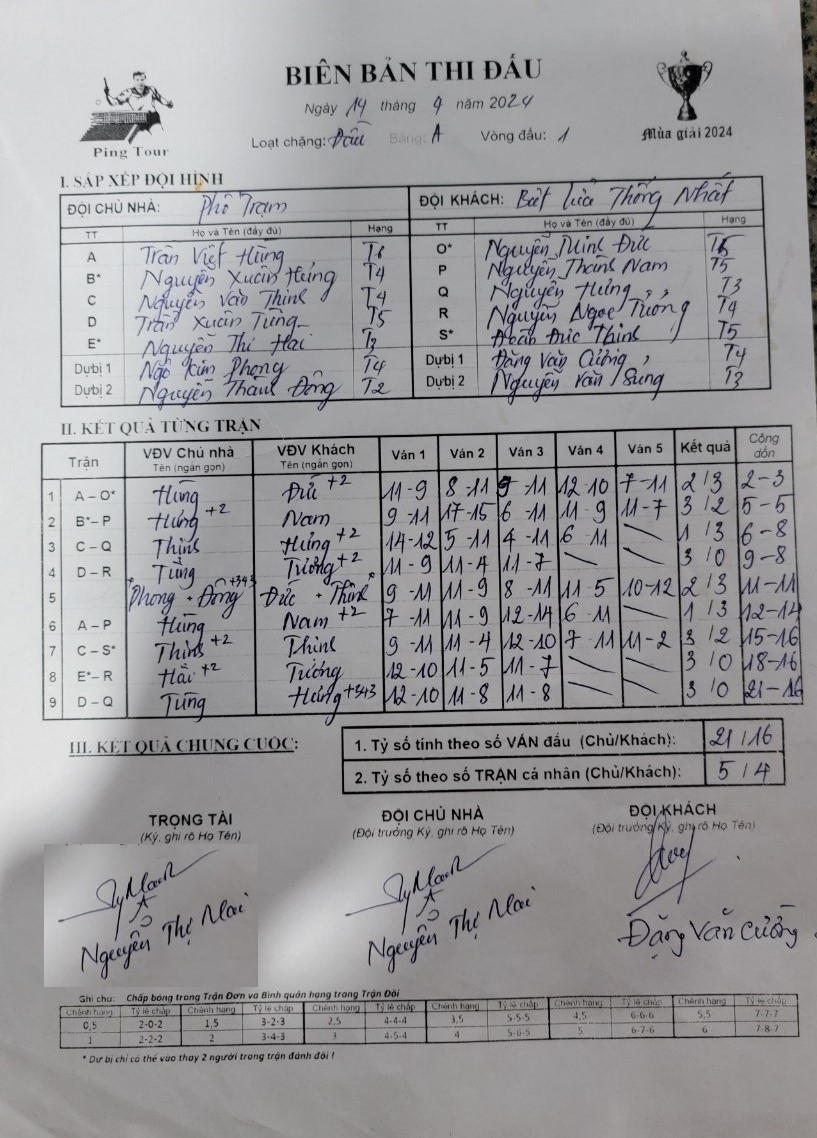 BIÊN BẢN THI ĐẤU
Ngày 14 tháng 9 năm 2024
Loạt chặng: Đầu Bảng: A Vòng đấu: 1
Ping Tour
Mùa giải 2024
I. SẮP XẾP ĐỘI HÌNH
ĐỘI CHỦ NHÀ: Phố Trạm ĐỘI KHÁCH: Bật lửa Thống Nhất
TT Họ và Tên (đầy đủ) Hạng TT Họ và Tên (đầy đủ) Hạng
A Trần Việt Hùng T6 O* Nguyễn Minh Đức T5
B* Nguyễn Xuân Hưng T4 P Nguyễn Thành Nam T5
C Nguyễn Văn Thịnh T4 Q Nguyễn Hưng T3
D Trần Xuân Tùng T5 R Nguyễn Ngọc Tường T4
E* Nguyễn Thị Hải T3 S* Đức Thịnh T5
Dự bị 1 Ngô Kim Phong T4 Dự bị 1 Đặng Văn Cường T4
Dự bị 2 Nguyễn Thành Đông T2 Dự bị 2 Nguyễn Văn Sung T3
II. KẾT QUẢ TỪNG TRẬN
Trận VĐV Chủ nhà Tên (ngắn gọn) VĐV Khách Tên (ngắn gọn) Ván 1 Ván 2 Ván 3 Ván 4 Ván 5 Kết quả Cộng dồn
1 A – O* Hùng Đức +2 11-9 8-11 9-11 12-10 7-11 2/3 2-3
2 B*– P Hưng +2 Nam 9-11 17-15 6-11 11-9 11-7 3/2 5-5
3 C – Q Thịnh Hưng +2 14-12 5-11 4-11 6-11 1/3 6-8
4 D – R Tùng Tường +2 11-9 11-4 11-7 3/0 9-8
5 Phong + Đông +343 Đức + Thịnh 9-11 11-9 8-11 11-5 10-12 2/3 11-11
6 A – P Hùng Nam +2 7-11 11-9 12-14 6-11 1/3 12-14
7 C – S* Thịnh +2 Thịnh 9-11 11-4 12-10 7-11 11-2 3/2 15-16
8 E*– R Hải +2 Tường 12-10 11-5 11-7 3/0 18-16
9 D – Q Tùng Hưng +343 12-10 11-8 11-8 3/0 21-16
III. KẾT QUẢ CHUNG CUỘC:
1. Tỷ số tính theo số VÁN đấu (Chủ/Khách): 21/16
2. Tỷ số theo số TRẬN cá nhân (Chủ/Khách): 5/4
TRỌNG TÀI ĐỘI CHỦ NHÀ ĐỘI KHÁCH
(Ký, ghi rõ Họ Tên) (Đội trưởng Ký, ghi rõ Họ Tên) (Đội trưởng Ký, ghi rõ Họ Tên)
Nguyễn Thị Mai Nguyễn Thị Mai Đặng Văn Cường
Ghi chú: Chấp bóng trong Trận Đơn và Bình quân hạng trong Trận Đôi
Chênh hạng Tỷ lệ chấp Chênh hạng Tỷ lệ chấp Chênh hạng Tỷ lệ chấp Chênh hạng Tỷ lệ chấp Chênh hạng Tỷ lệ chấp Chênh hạng Tỷ lệ chấp
0,5 2-0-2 1,5 3-2-3 2,5 4-4-4 3,5 5-5-5 4,5 6-6-6 5,5 7-7-7
1 2-2-2 2 3-4-3 3 4-5-4 4 5-6-5 5 6-7-6 6 7-8-7
* Dự bị chỉ có thể vào thay 2 người trong trận đánh đôi !